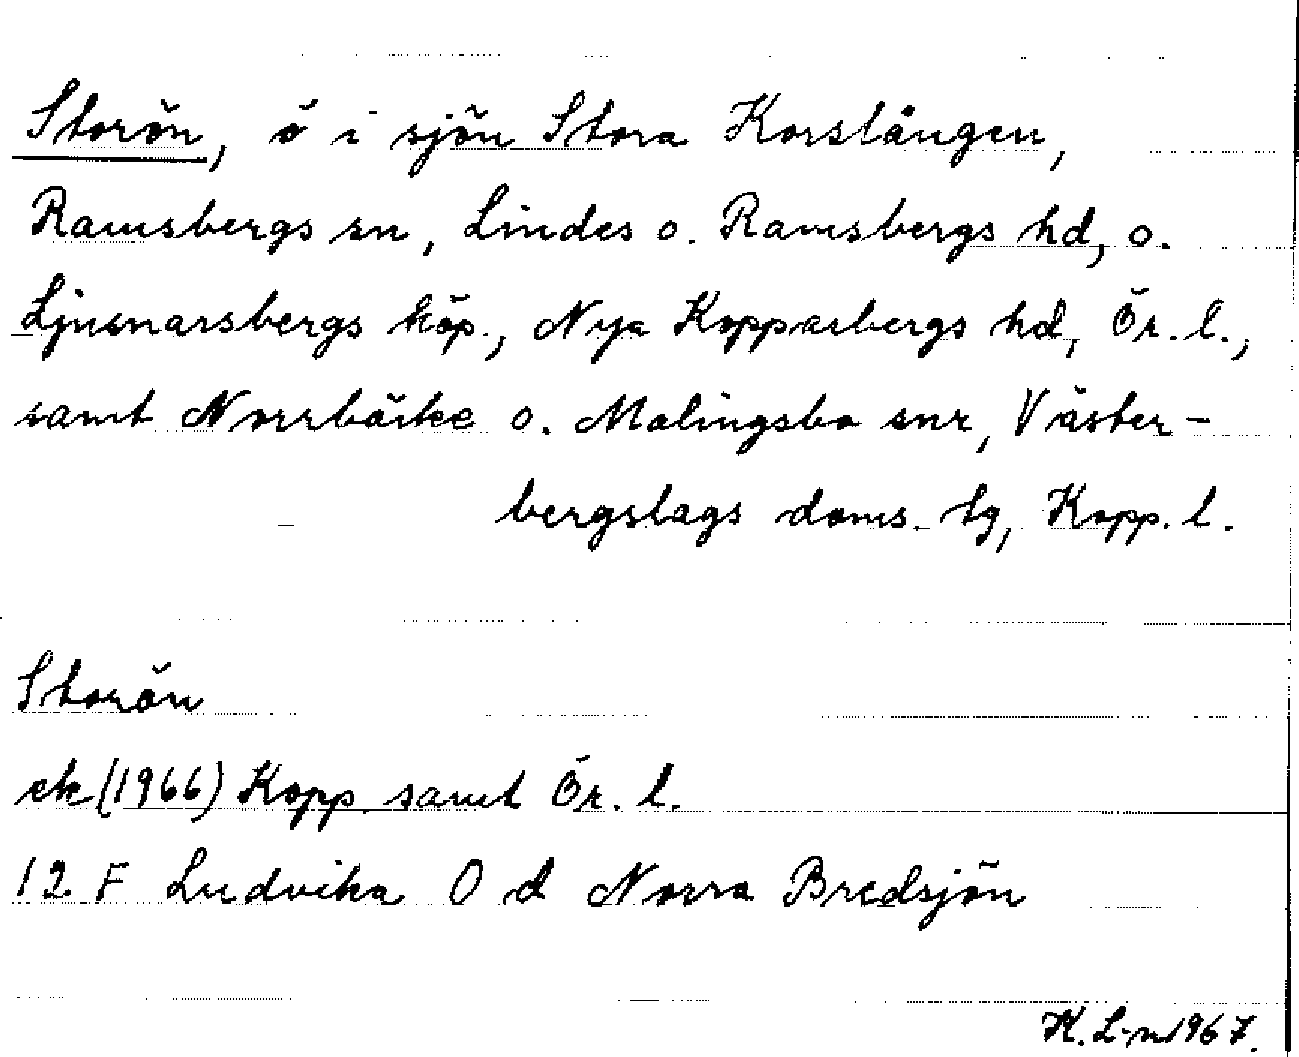 Storön, ö i sjön Stora Korslången,
Ramsbergs sn, Lindes o. Ramsbergs hd, o.
Ljusnarsbergs köp., Nya Kopparbergs hd, Ör. l.,
samt Norrbärke o. Malingsbo snr, Väster-
bergslags doms. tg, Kopp. l.
Storön
ek (1966) Kopp. samt Ör. l.
12 F Ludvika O d Norra Bredsjön
K. L-n 1967.